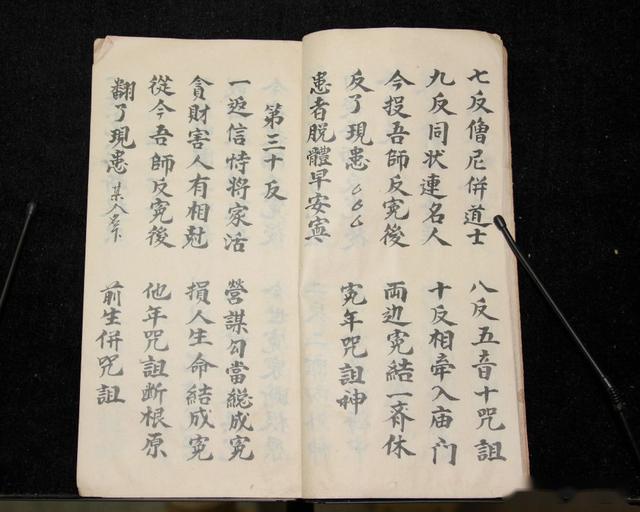 七反僧尼併道士　八反五音十咒詛
九反同狀連名人　十反相牽入庙门
今投吾師反寃後　両边寃結一斉休
反了現患ムムム　寃年咒詛神
患者脫體早安寜
第三十反
一返信恃將家活　營謀勾當緫成寃
貪財害人有相尅　損人生命結成寃
從今吾師反寃後　他年咒詛断根原
翻了現患某人名下　前生併咒詛